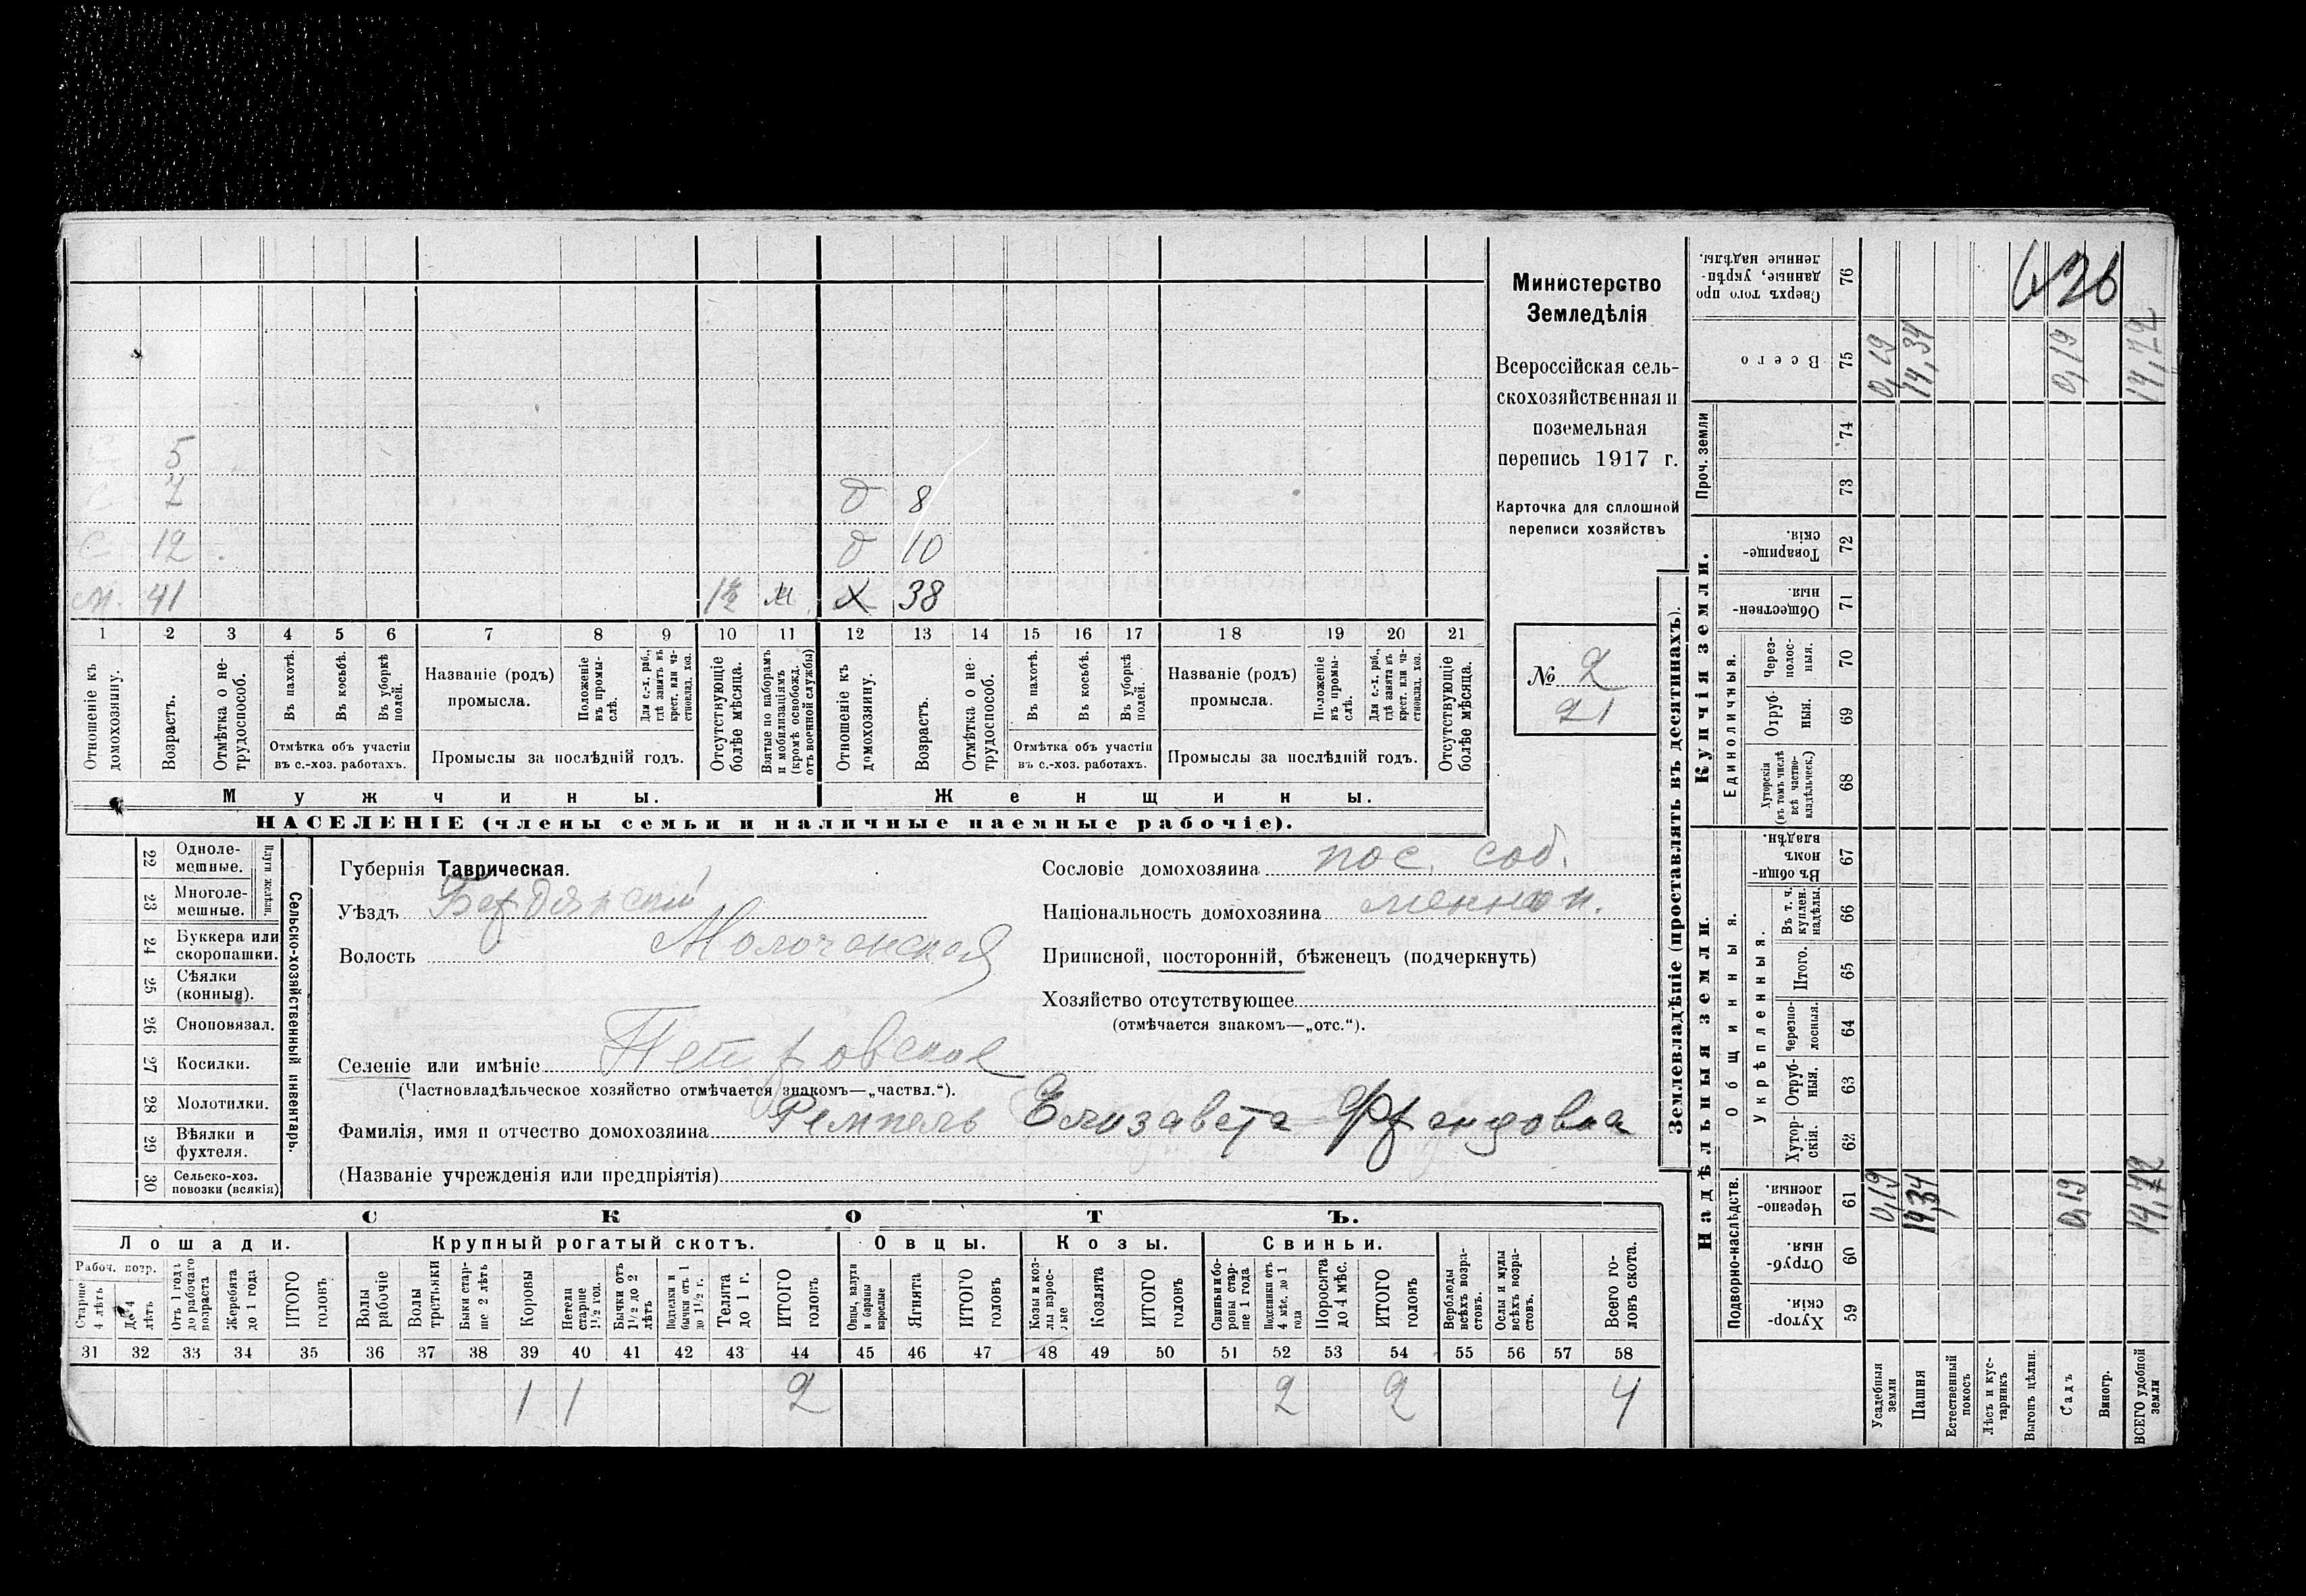 5
С 7 д 8
С 12 д 10
м. 41 1½ м х 38
1 2 3 4 5 6 7 8 9 10 11 12 13 14 15 16 17 18 19 20 21
Отношеніе къ домохозяину.
Возрастъ.
Отмѣтка о нетрудоспособ.
Въ пахотѣ.
Въ косьбѣ.
Въ уборкѣ полей.
Отмѣтка объ участіи
въ с.-хоз. работахъ.
Названіе (родъ)
промысла.
Положеніе въ промыслѣ.
Для с.-х. раб., гдѣ занятъ въ крест. или частновлад. хоз.
Промыслы за послѣдній годъ.
Отсутствующіе болѣе мѣсяца.
Взятые по наборамъ и мобилизаціямъ (кромѣ освобожд. отъ военной службы)
Отношеніе къ домохозяину.
Возрастъ.
Отмѣтка о нетрудоспособ.
Въ пахотѣ.
Въ косьбѣ.
Въ уборкѣ полей.
Отмѣтка объ участіи
въ с.-хоз. работахъ.
Названіе (родъ)
промысла.
Положеніе въ промыслѣ.
Для с.-х. раб., гдѣ занята въ крест. или частновлад. хоз.
Промыслы за послѣдній годъ.
Отсутствующіе болѣе мѣсяца.
Мужчины. Женщины.
НАСЕЛЕНІЕ (члены семьи и наличные наемные рабочіе).
Министерство
Земледѣлія
Всероссійская сель-
скохозяйственная и
поземельная
перепись 1917 г.
Карточка для сплошной
переписи хозяйствъ
№ 2
21
22 Одноле-
мешные.
23 Многоле-
мешные.
Плуги желѣзн.
24 Буккера или
скоропашки.
25 Сѣялки
(конныя).
26 Сноповязал.
27 Косилки.
28 Молотилки.
29 Вѣялки и
фухтеля.
30 Сельско-хоз.
повозки (всякія)
Сельско-хозяйственный инвентарь.
Губернія Таврическая.
Уѣздъ Бердянскій
Волость Молочанская
Селеніе или имѣніе Петровское
(Частновладѣльческое хозяйство отмѣчается знакомъ—„частвл.“).
Фамилія, имя и отчество домохозяина Ремпель Елизавета Францовна
(Названіе учрежденія или предпріятія)
Сословіе домохозяина пос. соб.
Національность домохозяина меннон.
Приписной, посторонній, бѣженецъ (подчеркнуть)
Хозяйство отсутствующее
(отмѣчается знакомъ—„отс.“).
СКОТЪ.
Лошади. Крупный рогатый скотъ. Овцы. Козы. Свиньи.
Рабоч. возр.
Старше 4 лѣтъ
До 4 лѣтъ
Отъ 1 года до рабочаго возраста
Жеребята до 1 года
ИТОГО головъ
Волы рабочіе
Волы третьяки
Быки старше 2 лѣтъ
Коровы
Нетели старше 1½ год.
Бычки отъ 1½ до 2 лѣтъ
Подтелки и бычки отъ 1 до 1½ г.
Телята до 1 г.
ИТОГО головъ
Овцы, валухи и бараны взрослые
Ягнята
ИТОГО головъ
Козы и козлы взрослые
Козлята
ИТОГО головъ
Свиньи и боровы старше 1 года
Подсвинки отъ 4 мѣс. до 1 года
Поросята до 4 мѣс.
ИТОГО головъ
Верблюды всѣхъ возрастовъ.
Ослы и мулы всѣхъ возрастовъ.
Всего головъ скота.
31 32 33 34 35 36 37 38 39 40 41 42 43 44 45 46 47 48 49 50 51 52 53 54 55 56 57 58
1 1 2 2 2 4
Землевладѣніе (проставлять въ десятинахъ).
Надѣльныя земли. Купчія земли.
Проч. земли
Подворно-наслѣдств.
Общинныя.
Укрѣпленныя.
Единоличныя.
Сверхъ того проданные, укрѣпленные надѣлы. 76
Всего 75 0,19 14,34 0,19 14,72
74
73
Товарищескія. 72
Общественныя. 71
Черезполосныя. 70
Отрубныя. 69
Хуторскія (въ томъ числѣ всѣ частновладѣльческ.) 68
Въ общинномъ владѣн. 67
Въ т. ч. куплен. надѣлы. 66
Итого. 65
Черезполосныя. 64
Отрубныя. 63
Хуторскія. 62
Черезполосныя. 61 0,19 14,34 0,19 14,72
Отрубныя 60
Хуторскія. 59
Усадебныя земли
Пашня
Естественный покосъ
Лѣсъ и кустарникъ
Выгонъ цѣлин.
Садъ
Виногр.
ВСЕГО удобной земли